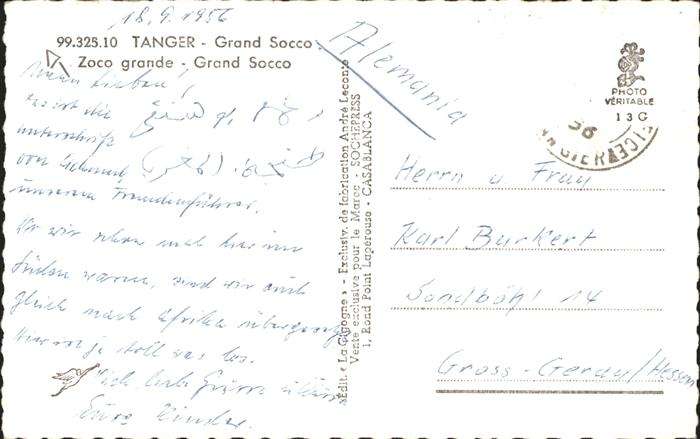 18.9.1956
99.325.10 TANGER - Grand Socco
Zoco grande - Grand Socco
Meine Lieben!
Das ist die
Unterschrift
von
unserem Fremdenführer.
Da wir schon mal hier im
Süden waren, sind wir auch
gleich nach Afrika
Hier ist ja toll was los.
Grüsse
Eure Kinder.
«Édit. « La Cigogne » - Exclusiv. de fabrication André Leconte
Vente exclusive pour le Maroc - SOCHEPRESS
1, Rond Point Lapérouse - CASABLANCA
Alemania
PHOTO
VÉRITABLE
13G
56
Herrn u Frau
Karl Burkert
Sandböhl 14
Gross-Gerau/Hessen